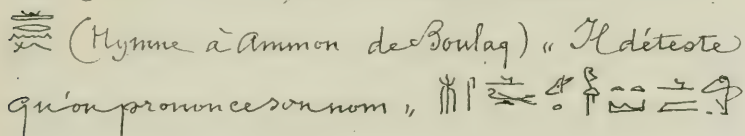 (Hymne à Ammon de Boulaq) „ Il déteste
qu'on prononce son nom „